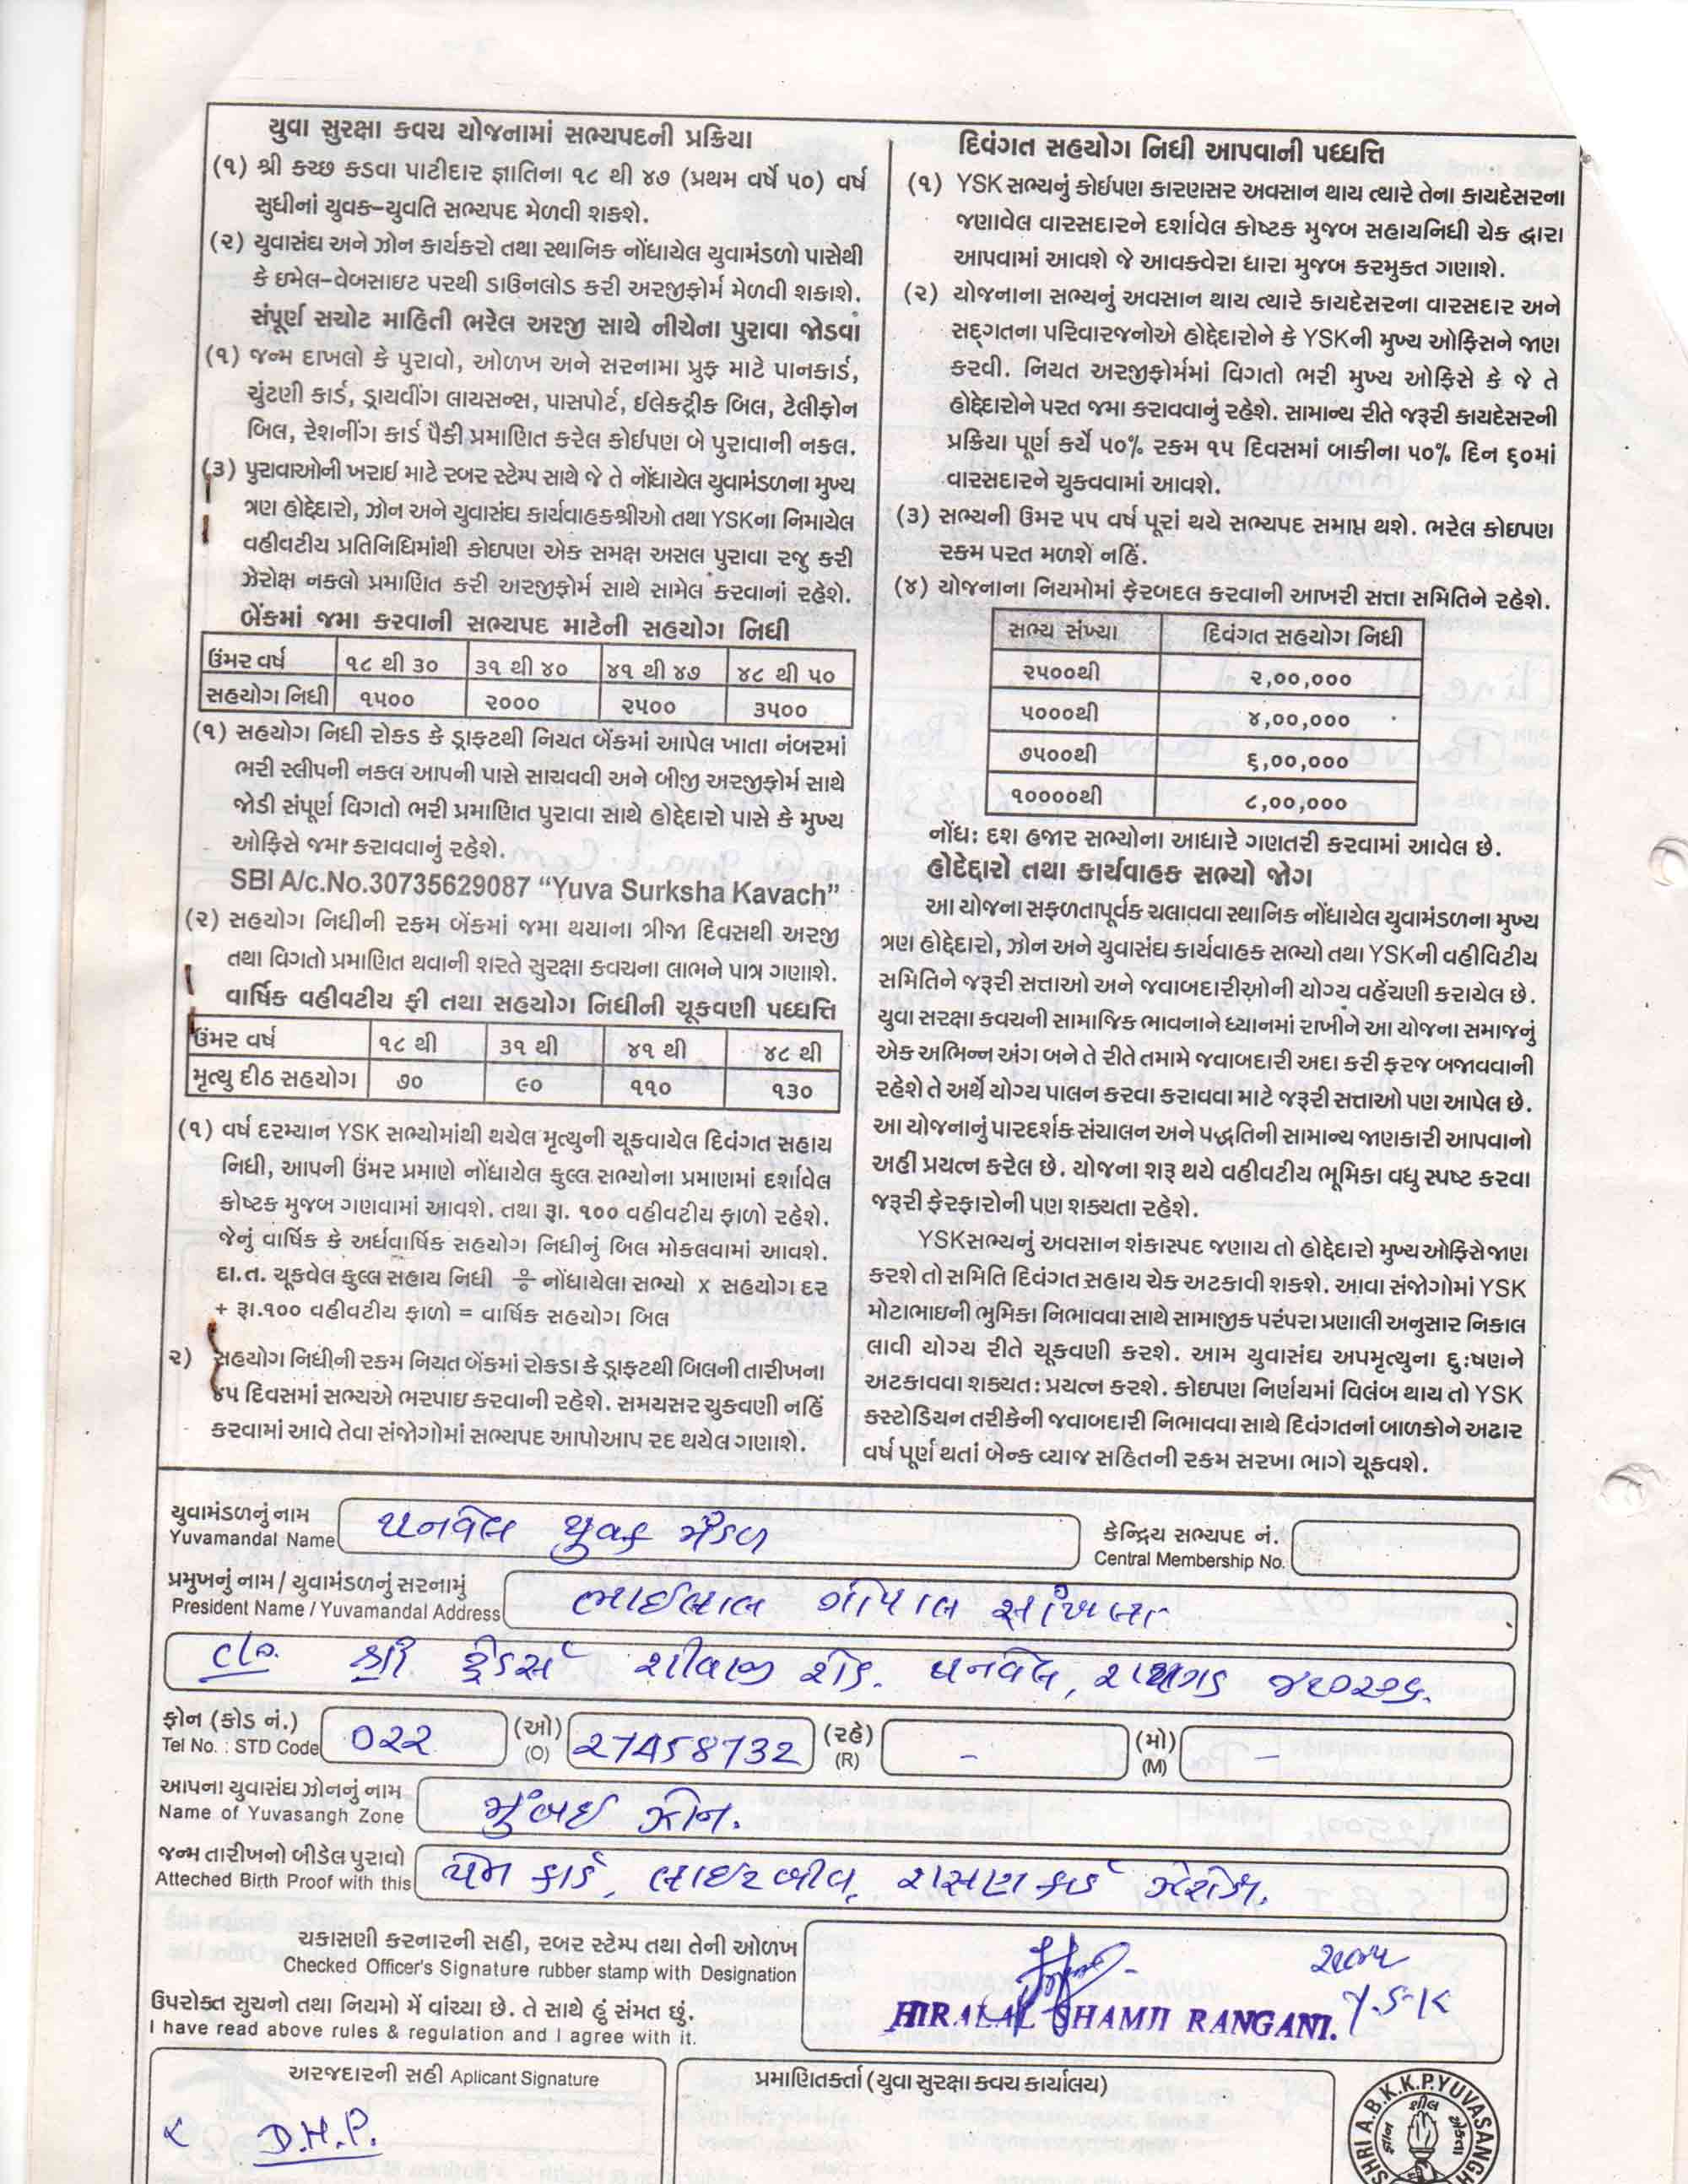 યુવા સુરક્ષા કવચ યોજનામાં સભ્યપદની પ્રક્રિયા
(૧) શ્રી કચ્છ કડવા પાટીદાર જ્ઞાતિના ૧૮ થી ૪૭ (પ્રથમ વર્ષે ૫૦) વર્ષ
સુધીનાં યુવક-યુવતિ સભ્યપદ મેળવી શકશે.
(૨) યુવાસંઘ અને ઝોન કાર્યકરો તથા સ્થાનિક નોંધાયેલ યુવામંડળો પાસેથી
કે ઇમેલ-વેબસાઇટ પરથી ડાઉનલોડ કરી અરજીફોર્મ મેળવી શકાશે.
સંપૂર્ણ સચોટ માહિતી ભરેલ અરજી સાથે નીચેના પુરાવા જોડવાં
(૧) જન્મ દાખલો કે પુરાવો, ઓળખ અને સરનામા પ્રુફ માટે પાનકાર્ડ,
ચુંટણી કાર્ડ, ડ્રાયવીંગ લાયસન્સ, પાસપોર્ટ, ઈલેક્ટ્રીક બિલ, ટેલીફોન
બિલ, રેશનીંગ કાર્ડ પૈકી પ્રમાણિત કરેલ કોઈપણ બે પુરાવાની નકલ.
(૩) પુરાવાઓની ખરાઈ માટે રબર સ્ટેમ્પ સાથે જે તે નોંધાયેલ યુવામંડળના મુખ્ય
ત્રણ હોદ્દેદારો, ઝોન અને યુવાસંઘ કાર્યવાહકશ્રીઓ તથા YSKના નિમાયેલ
વહીવટીય પ્રતિનિધિમાંથી કોઇપણ એક સમક્ષ અસલ પુરાવા રજુ કરી
ઝેરોક્ષ નકલો પ્રમાણિત કરી અરજીફોર્મ સાથે સામેલ કરવાનાં રહેશે.
બેંકમાં જમા કરવાની સભ્યપદ માટેની સહયોગ નિધી
ઉંમર વર્ષ ૧૮ થી ૩૦ ૩૧ થી ૪૦ ૪૧ થી ૪૭ ૪૮ થી ૫૦
સહયોગ નિધી ૧૫૦૦ ૨૦૦૦ ૨૫૦૦ ૩૫૦૦
(૧) સહયોગ નિધી રોકડ કે ડ્રાફટથી નિયત બેંકમાં આપેલ ખાતા નંબરમાં
ભરી સ્લીપની નકલ આપની પાસે સાચવવી અને બીજી અરજીફોર્મ સાથે
જોડી સંપૂર્ણ વિગતો ભરી પ્રમાણિત પુરાવા સાથે હોદ્દેદારો પાસે કે મુખ્ય
ઓફિસે જમા કરાવવાનું રહેશે.
SBI A/c.No.30735629087 “Yuva Surksha Kavach”
(૨) સહયોગ નિધીની રકમ બેંકમાં જમા થયાના ત્રીજા દિવસથી અરજી
તથા વિગતો પ્રમાણિત થવાની શરતે સુરક્ષા કવચના લાભને પાત્ર ગણાશે.
વાર્ષિક વહીવટીય ફી તથા સહયોગ નિધીની ચૂકવણી પધ્ધત્તિ
ઉંમર વર્ષ ૧૮ થી ૩૧ થી ૪૧ થી ૪૮ થી
મૃત્યુ દીઠ સહયોગ ૭૦ ૯૦ ૧૧૦ ૧૩૦
(૧) વર્ષ દરમ્યાન YSK સભ્યોમાંથી થયેલ મૃત્યુની ચૂકવાયેલ દિવંગત સહાય
નિધી, આપની ઉંમર પ્રમાણે નોંધાયેલ કુલ્લ સભ્યોના પ્રમાણમાં દર્શાવેલ
કોષ્ટક મુજબ ગણવામાં આવશે. તથા રૂા. ૧૦૦ વહીવટીય ફાળો રહેશે.
જેનું વાર્ષિક કે અર્ધવાર્ષિક સહયોગ નિધીનું બિલ મોકલવામાં આવશે.
દા.ત. ચૂકવેલ કુલ્લ સહાય નિધી ÷ નોંધાયેલા સભ્યો x સહયોગ દર
+ રૂા.૧૦૦ વહીવટીય ફાળો = વાર્ષિક સહયોગ બિલ
૨) સહયોગ નિધીની રકમ નિયત બેંકમાં રોકડા કે ડ્રાફટથી બિલની તારીખના
૪૫ દિવસમાં સભ્યએ ભરપાઇ કરવાની રહેશે. સમયસર ચુકવણી નહિં
કરવામાં આવે તેવા સંજોગોમાં સભ્યપદ આપોઆપ રદ થયેલ ગણાશે.
દિવંગત સહયોગ નિધી આપવાની પધ્ધત્તિ
(૧) YSK સભ્યનું કોઈપણ કારણસર અવસાન થાય ત્યારે તેના કાયદેસરના
જણાવેલ વારસદારને દર્શાવેલ કોષ્ટક મુજબ સહાયનિધી ચેક દ્વારા
આપવામાં આવશે જે આવકવેરા ધારા મુજબ કરમુક્ત ગણાશે.
(૨) યોજનાના સભ્યનું અવસાન થાય ત્યારે કાયદેસરના વારસદાર અને
સદ્‌ગતના પરિવારજનોએ હોદ્દેદારોને કે YSKની મુખ્ય ઓફિસને જાણ
કરવી. નિયત અરજીફોર્મમાં વિગતો ભરી મુખ્ય ઓફિસે કે જે તે
હોદ્દેદારોને પરત જમા કરાવવાનું રહેશે. સામાન્ય રીતે જરૂરી કાયદેસરની
પ્રક્રિયા પૂર્ણ કર્યે ૫૦% રકમ ૧૫ દિવસમાં બાકીના ૫૦% દિન ૬૦માં
વારસદારને ચુકવવામાં આવશે.
(૩) સભ્યની ઉમર ૫૫ વર્ષ પૂરાં થયે સભ્યપદ સમાપ્ત થશે. ભરેલ કોઇપણ
રકમ પરત મળશે નહિં.
(૪) યોજનાના નિયમોમાં ફેરબદલ કરવાની આખરી સત્તા સમિતિને રહેશે.
સભ્ય સંખ્યા દિવંગત સહયોગ નિધી
૨૫૦૦થી ૨,૦૦,૦૦૦
૫૦૦૦થી ૪,૦૦,૦૦૦
૭૫૦૦થી ૬,૦૦,૦૦૦
૧૦૦૦૦થી ૮,૦૦,૦૦૦
નોંધ: દશ હજાર સભ્યોના આધારે ગણતરી કરવામાં આવેલ છે.
હોદેદ્દારો તથા કાર્યવાહક સભ્યો જોગ
આ યોજના સફળતાપૂર્વક ચલાવવા સ્થાનિક નોંધાયેલ યુવામંડળના મુખ્ય
ત્રણ હોદ્દેદારો, ઝોન અને યુવાસંઘ કાર્યવાહક સભ્યો તથા YSKની વહીવિટીય
સમિતિને જરૂરી સત્તાઓ અને જવાબદારીઓની યોગ્ય વહેંચણી કરાયેલ છે.
યુવા સરક્ષા કવચની સામાજિક ભાવનાને ધ્યાનમાં રાખીને આ યોજના સમાજનું
એક અભિન્ન અંગ બને તે રીતે તમામે જવાબદારી અદા કરી ફરજ બજાવવાની
રહેશે તે અર્થે યોગ્ય પાલન કરવા કરાવવા માટે જરૂરી સત્તાઓ પણ આપેલ છે.
આ યોજનાનું પારદર્શક સંચાલન અને પદ્ધતિની સામાન્ય જાણકારી આપવાનો
અહીં પ્રયત્ન કરેલ છે. યોજના શરૂ થયે વહીવટીય ભૂમિકા વધુ સ્પષ્ટ કરવા
જરૂરી ફેરફારોની પણ શક્યતા રહેશે.
YSK સભ્યનું અવસાન શંકાસ્પદ જણાય તો હોદ્દેદારો મુખ્ય ઓફિસે જાણ
કરશે તો સમિતિ દિવંગત સહાય ચેક અટકાવી શકશે. આવા સંજોગોમાં YSK
મોટાભાઇની ભુમિકા નિભાવવા સાથે સામાજીક પરંપરા પ્રણાલી અનુસાર નિકાલ
લાવી યોગ્ય રીતે ચૂકવણી કરશે. આમ યુવાસંઘ અપમૃત્યુના દુઃષણને
અટકાવવા શક્યતઃ પ્રયત્ન કરશે. કોઇપણ નિર્ણયમાં વિલંબ થાય તો YSK
કસ્ટોડિયન તરીકેની જવાબદારી નિભાવવા સાથે દિવંગતનાં બાળકોને અઢાર
વર્ષ પૂર્ણ થતાં બેન્ક વ્યાજ સહિતની રકમ સરખા ભાગે ચૂકવશે.
યુવામંડળનું નામ પનવેલ યુવક મંડળ કેન્દ્રિય સભ્યપદ નં.
Yuvamandal Name Central Membership No.
પ્રમુખનું નામ / યુવામંડળનું સરનામું ભાઈલાલ ગોપાલ સાંખલા
President Name / Yuvamandal Address
c/o. શ્રી ટ્રેડર્સ શીવાજી રોડ. પનવેલ, રાયગડ ૪૧૦૨૦૬.
ફોન (કોડ નં.) 022 (ઓ) 27458732 (રહે) - (મો) -
Tel No. : STD Code (O) (R) (M)
આપના યુવાસંઘ ઝોનનું નામ મુંબઈ ઝોન.
Name of Yuvasangh Zone
જન્મ તારીખનો બીડેલ પુરાવો પેન કાર્ડ, લાઇટ બીલ, રાસણ કાર્ડ ઝેરોક્ષ.
Atteched Birth Proof with this
ચકાસણી કરનારની સહી, રબર સ્ટેમ્પ તથા તેની ઓળખ
Checked Officer's Signature rubber stamp with Designation
Y.S.K
HIRALAL SHAMJI RANGANI.
ઉપરોક્ત સુચનો તથા નિયમો મેં વાંચ્યા છે. તે સાથે હું સંમત છું.
I have read above rules & regulation and I agree with it.
અરજદારની સહી Aplicant Signature
D.H.P.
પ્રમાણિતકર્તા (યુવા સુરક્ષા કવચ કાર્યાલય)
SHRI A.B.K.K.P.YUVASANGH